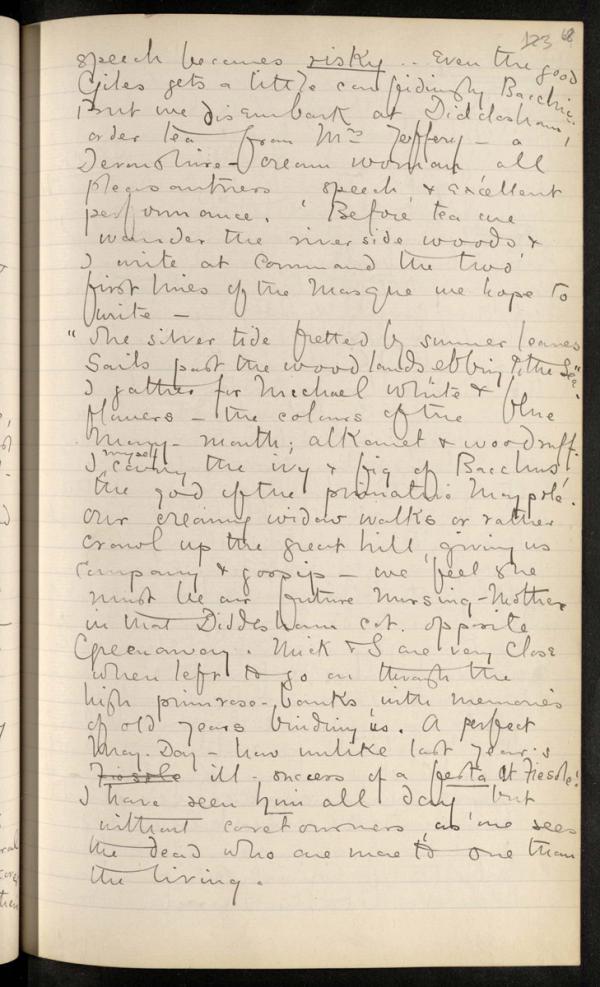 123 68
speech becomes risky .. Even the good
Giles gets a little confidingly Bacchic.
But we disembark at Diddesham,
order tea from Mrs Jeffery – a
Devonshire-cream woman all
pleasantness speech, & excellent
performance. Before tea we
wander the river side woods &
I write at command the two
first lines of the Masque we hope to
write –
"The silver tide fretted by summer leaves
Sails past the woodlands ebbing to the Sea".
I gather for Michael white & blue
flowers – the colours of the
Mary-month; alkanet & woodruff.
I myself carry the ivy & fig of Bacchus
the god of the primative Maypole.
Our creaming widow walks or rather
crawl up the great hill, giving us
company & gossip – we feel she
must be our future Nursing-Mother
in that Diddesham cot. opposite
Greenaway. Mick & I are very close
when left to go on through the
high primrose-banks with memories
of old years binding us. A perfect
May-Day – how unlike last year's
Fiesole ill-success of a festa at Fiesole!
I have seen him all day but
without coutourners, as one sees
the dead who are more to one than
the living.